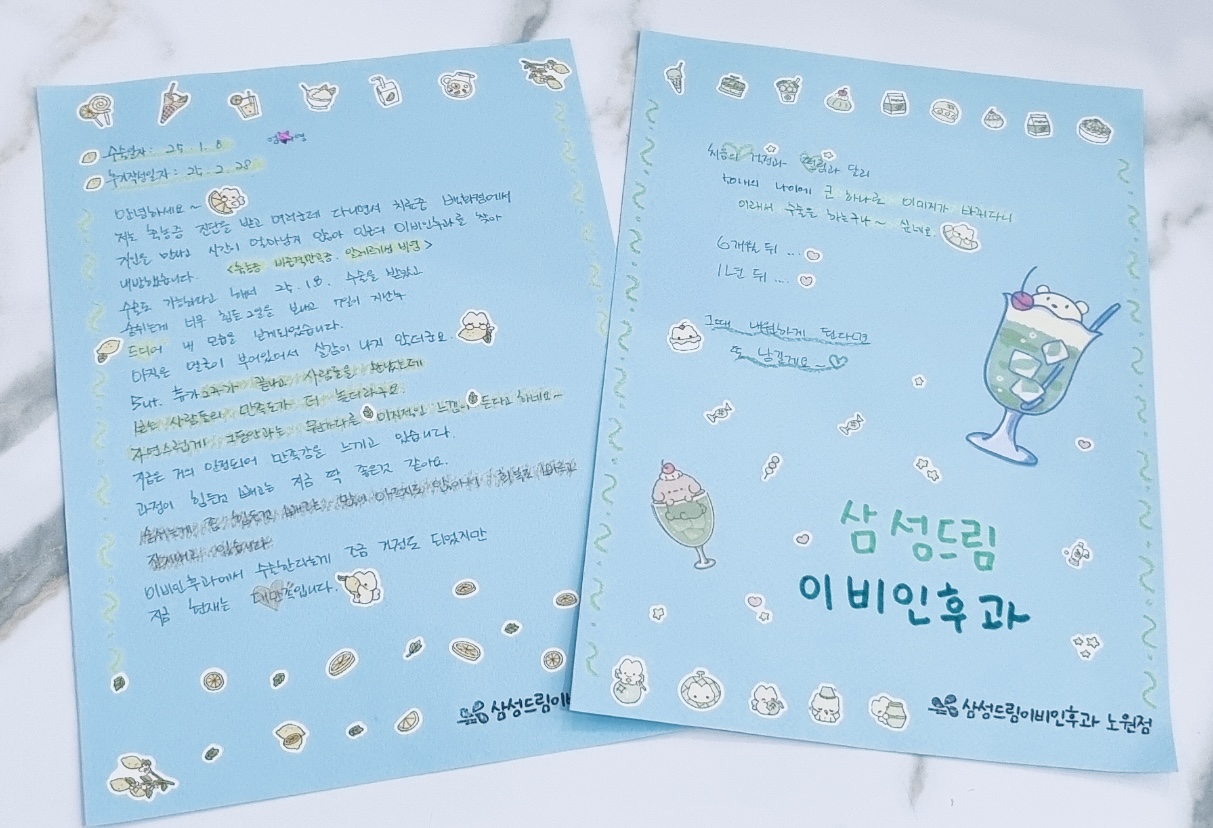 수술일자 : 25. 1. 8
후기작성일자 : 25. 2. 28
안녕하세요~
저는 축농증 진단을 받고 여러군데 다니면서 치료중 백화점에서
지인을 만나고 시간이 얼마남지 않아 인근에 이비인후과를 찾아
내방했습니다. <축농증 비중격만곡증. 알레르기성 비염>
수술도 가능하다고 해서 25. 1. 8. 수술을 받았고
숨쉬는게 너무 힘든 2일을 보내고 7일이 지난후
드디어 내 모습을 보게되었습니다.
아직은 얼굴이 부어있어서 실감이 나지 않더군요.
But. 휴가 2주가 끝나고 사람들을 만났는데
보는 사람들의 만족도가 더 높더라구요.
자연스럽게 그동안과는 뭔가다른 이지적인 느낌이 든다고 하네요~
지금은 거의 안정되어 만족감을 느끼고 있습니다.
과정이 힘든것 빼고는 지금 딱 좋은것 같아요.
이비인후과에서 수술한다는게 조금 걱정도 되었지만
지금 현재는 대만족입니다.
삼성드림이비
처음의 걱정과 떨림과 달리
50대의 나이에 코 하나로 이미지가 바뀌다니
이래서 수술을 하는구나~ 싶네요.
6개월 뒤 ....
1년 뒤 ....
그때 내원하게 된다면
또 남길게요~♡
삼성드림
이비인후과
삼성드림이비인후과 노원점